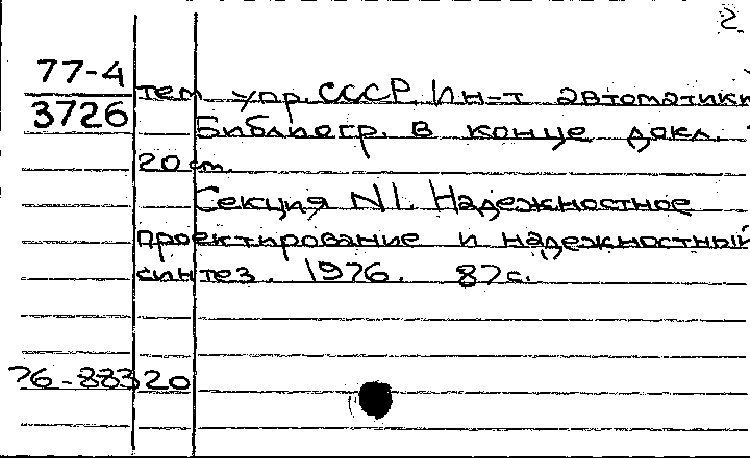 2
77-4
3726
тем упр. СССР. Ин-т автоматики
Библиогр. в конце докл.
20 см.
Секция N1. Надежностное
проектирование и надежностный
синтез. 1976. 87с.
76-88320